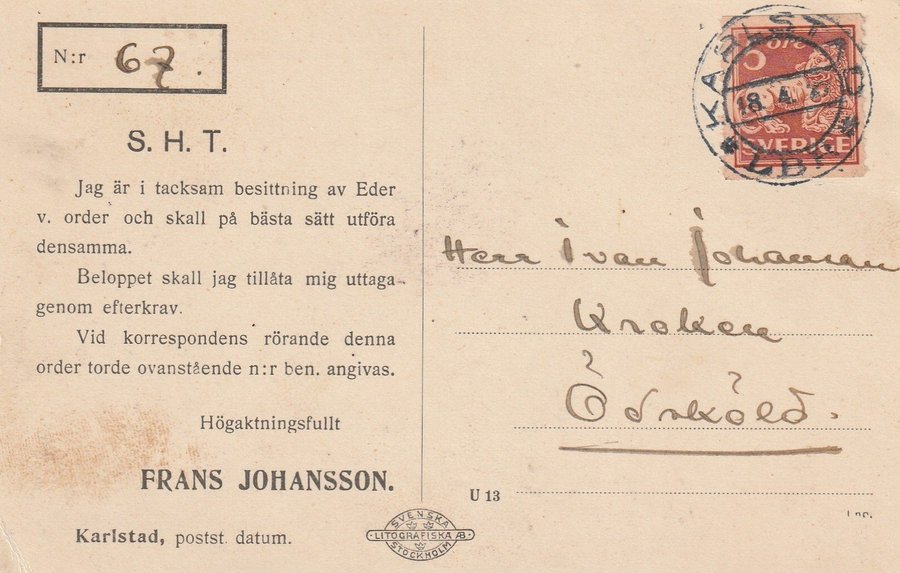 N:r 67.
S. H. T.
Jag är i tacksam besittning av Eder
v. order och skall på bästa sätt utföra
densamma.
Beloppet skall jag tillåta mig uttaga
genom efterkrav.
Vid korrespondens rörande denna
order torde ovanstående n:r ben. angivas.
Högaktningsfullt
FRANS JOHANSSON.
Karlstad, postst. datum.
SVENSKA
LITOGRAFISKA AB.
STOCKHOLM
U 13
5 öre
SVERIGE
KARLSTAD
18. 4.
LBR
Herr Ivan Johansson
Kroken
Ödsköld.